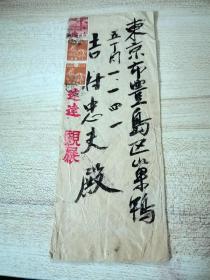 東京市豊島区巣鴨
五丁目一一四一
吉村忠夫殿
速達
親展